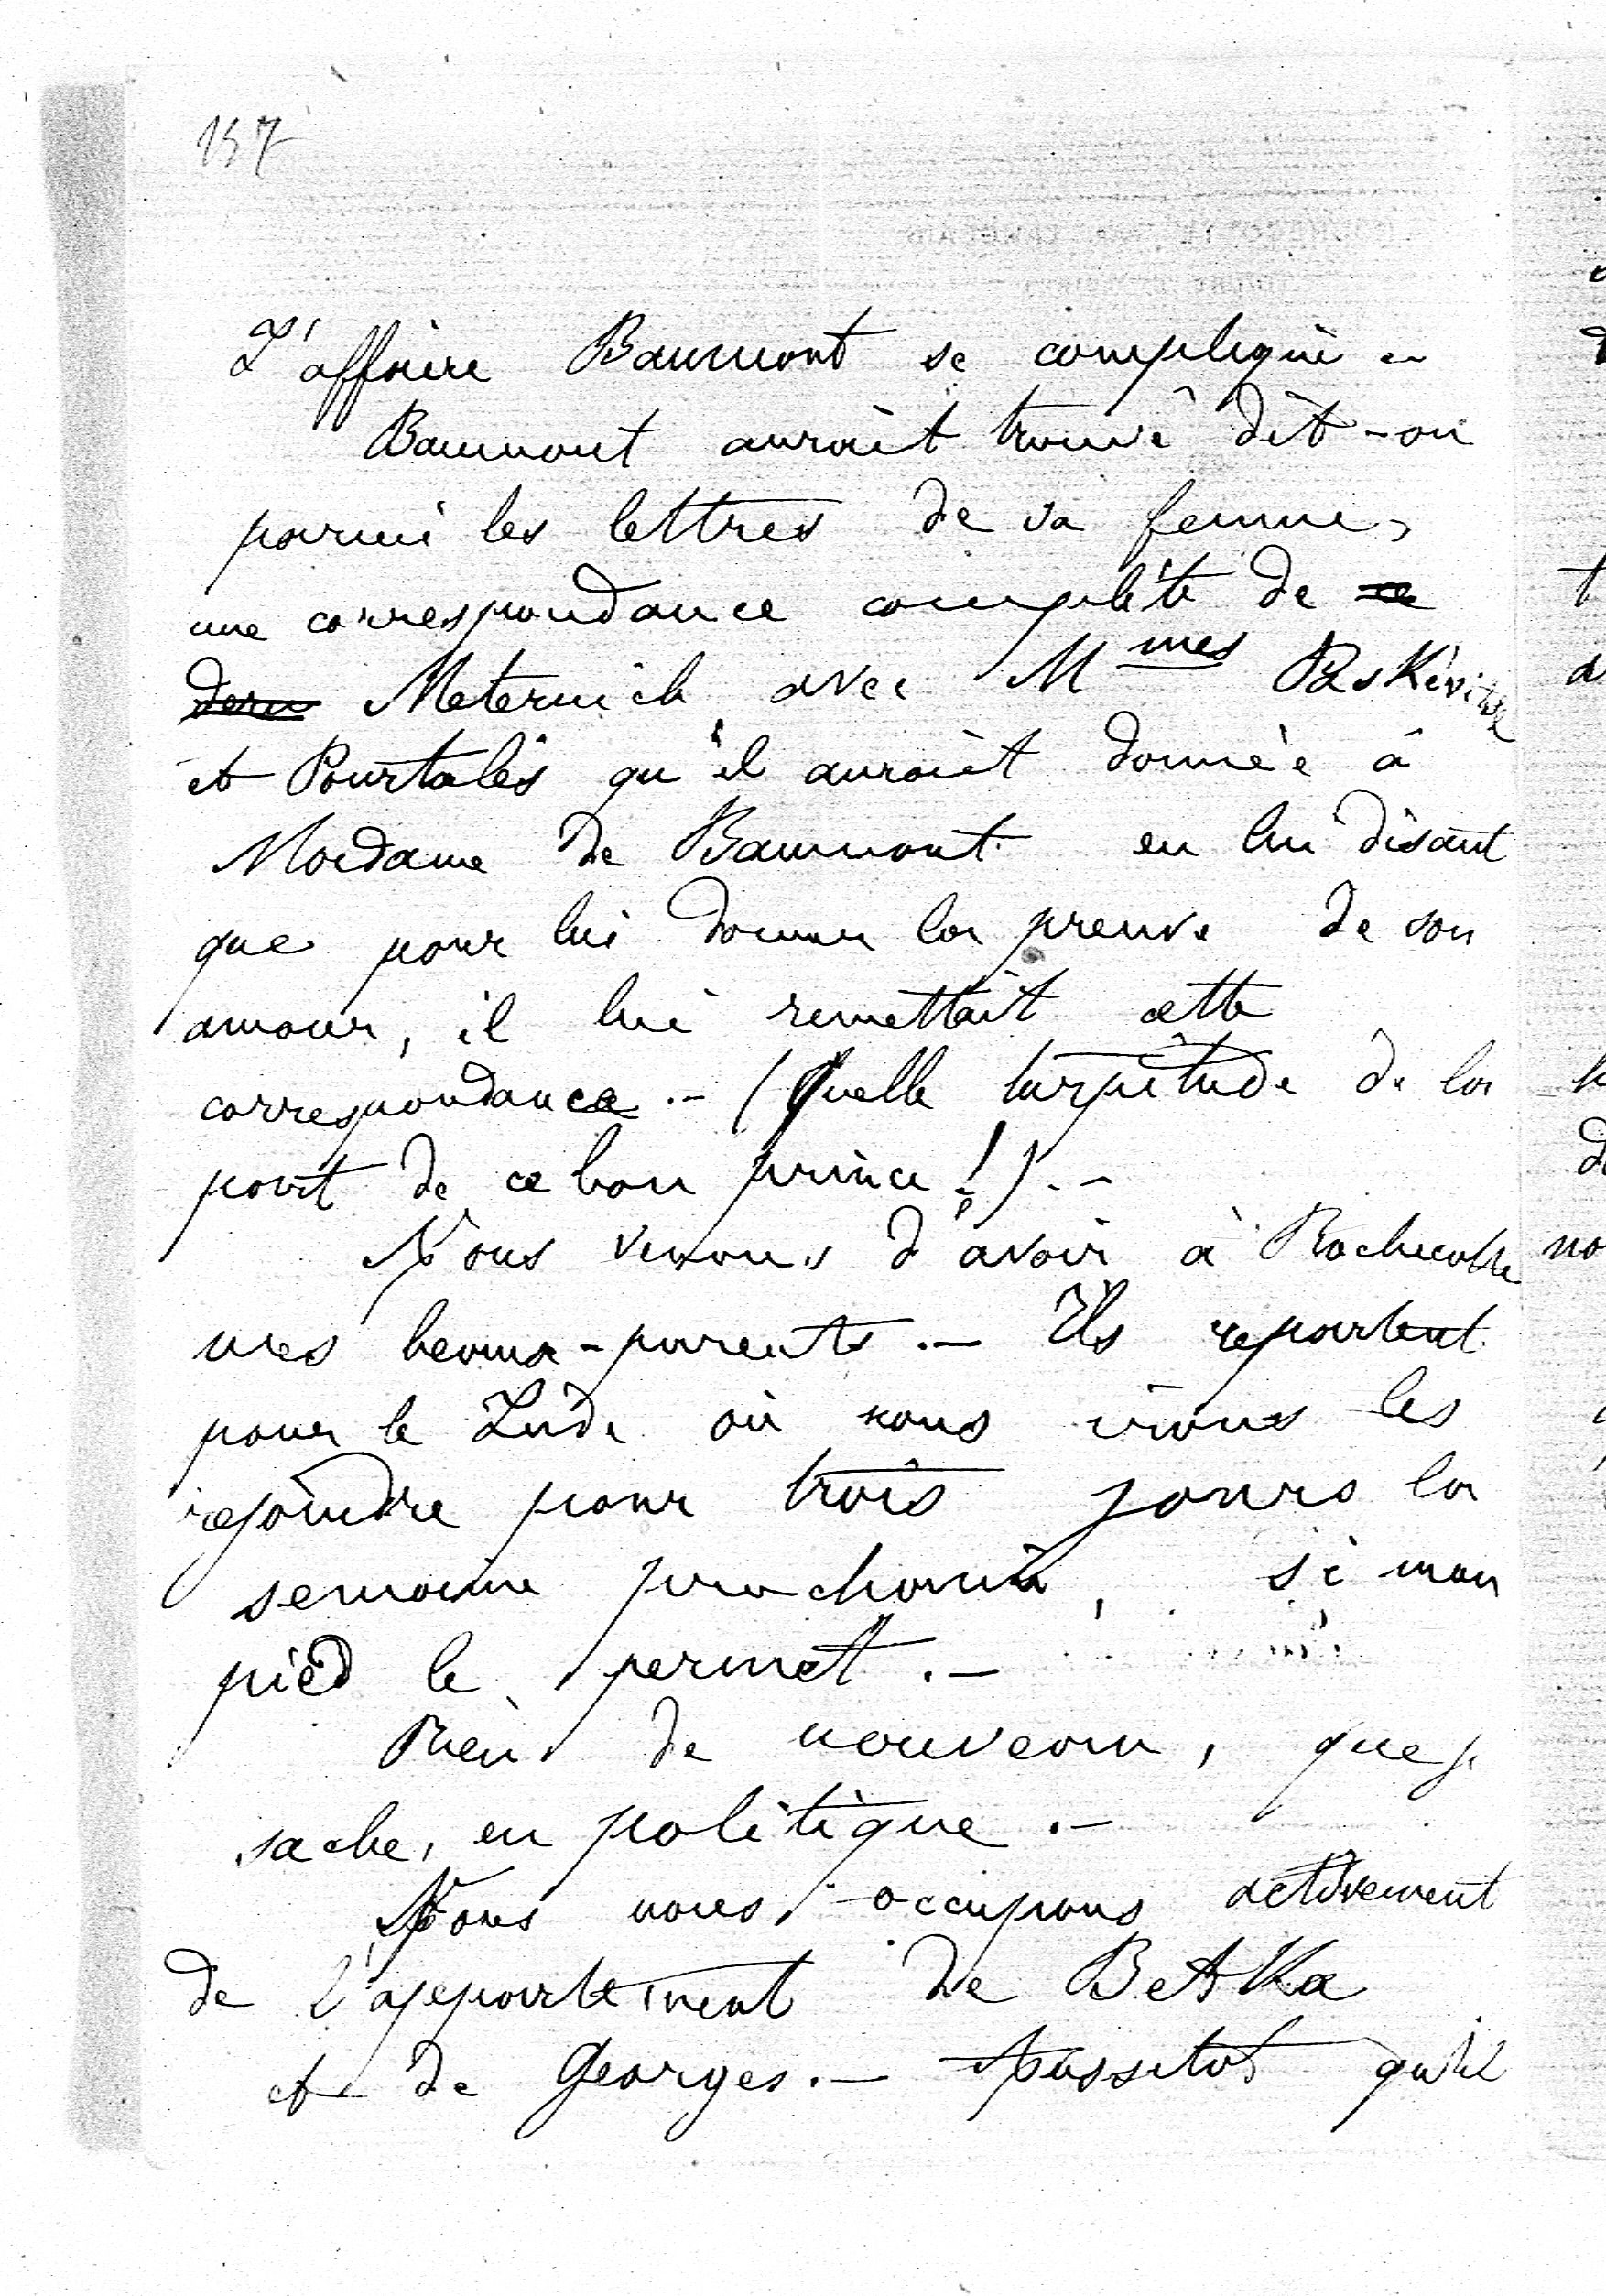 157
L'affaire Baumont se complique –
Baumont aurait trouvé dit-on
parmi les lettres de sa femme,
une correspondance complète de ce
dern Meternich avec Mmes Paskévitch
et Pourtalès qu'il aurait donnée à
Madame de Baumont en lui disant
que pour lui donner la preuve de son
amour, il lui remettait cette
correspondance. – (Quelle turpitude de la
part de ce bon prince !). –
Nous venons d'avoir à Rochecotte
mes beaux-parents. – Ils repartent
pour le Lude où nous irons les
rejoindre pour trois jours la
semaine prochaine, si mon
pied le permet. –
Rien de nouveau, que je
sache, en politique. –
Nous nous occupons activement
de l'appartement de Betka
et de Georges. – Aussitot qu'il